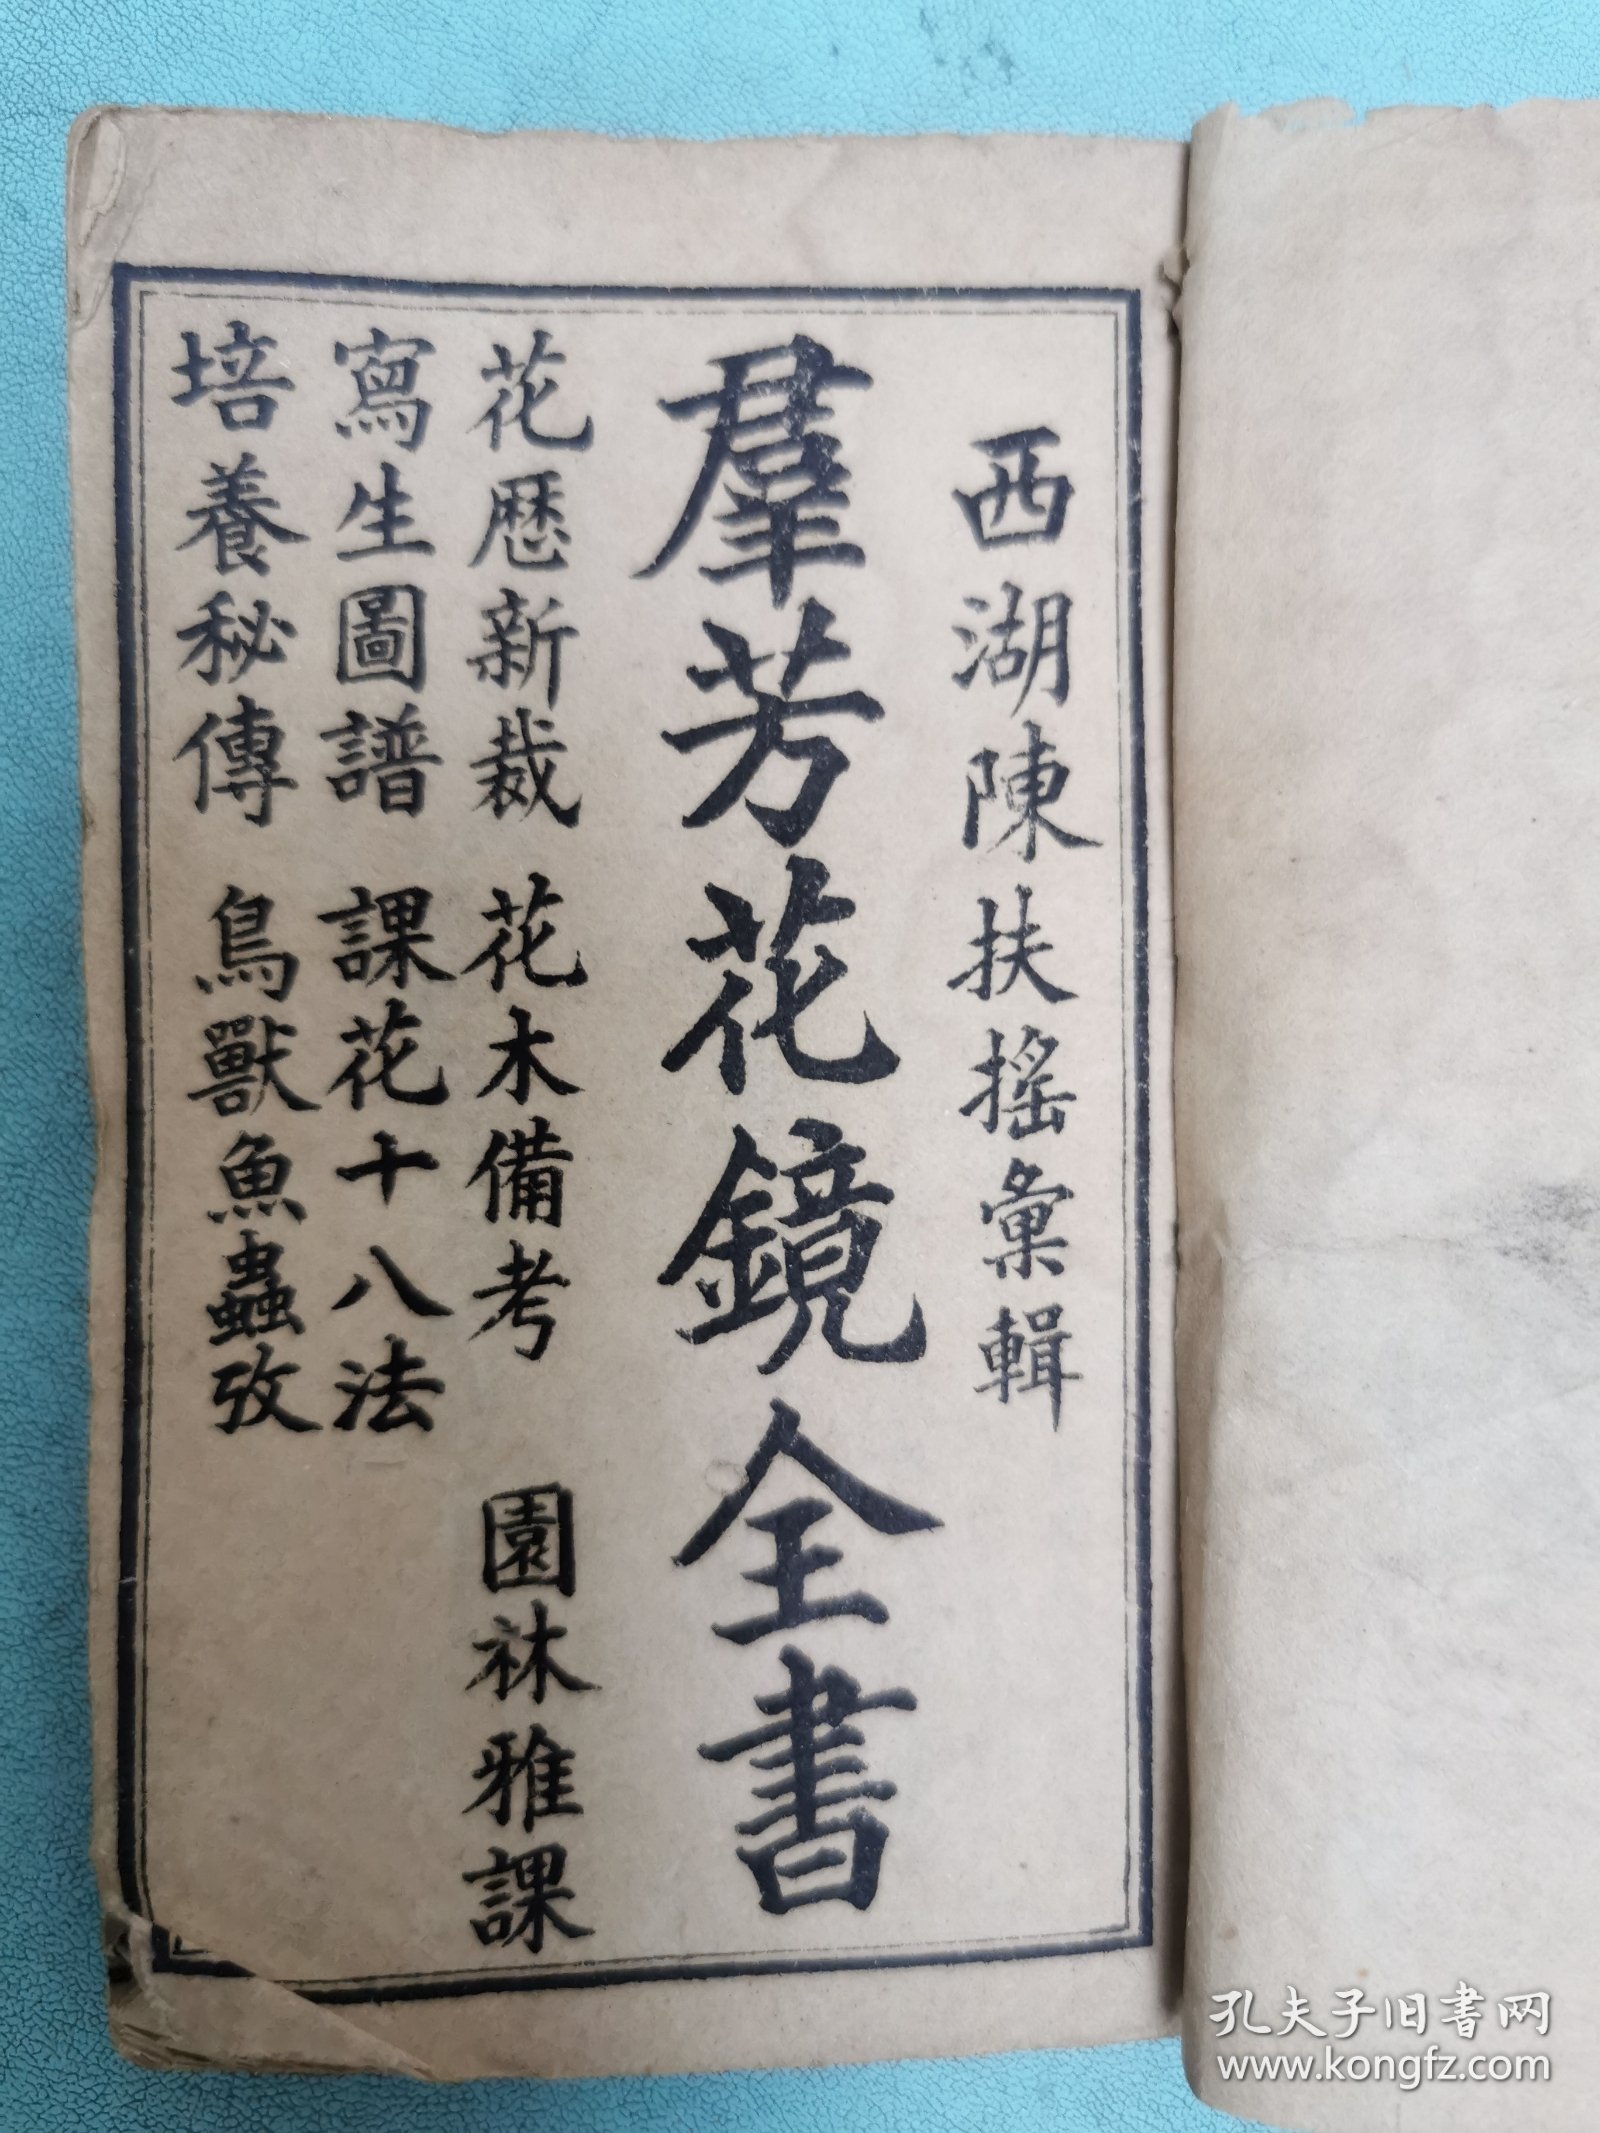 西湖陳扶搖彙輯
羣芳花鏡全書
花厯新裁 花木備考 園林雅課
寫生圖譜 課花十八法
培養秘傳 鳥獸魚蟲攷
孔夫子旧书网
www.kongfz.com